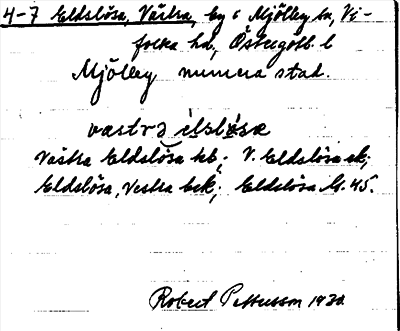 4-7 Eldslösa, Västra, by i Mjölby sn, Vi-
folka hd, Östergötl. l
Mjölby numera stad.
västra ilslösa
Västra Eldslösa kb; V. Eldslösa ek;
Eldslösa, Vestra bek; Eldslösa G. 45.
Robert Pettersson 1930